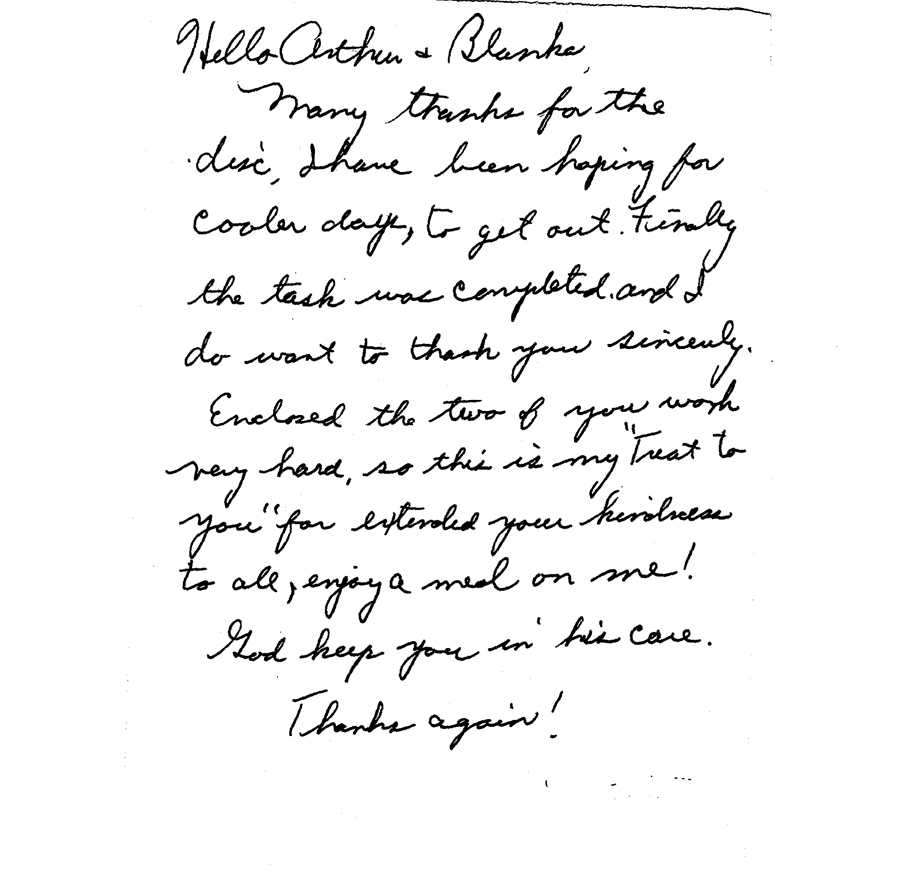 Hello Arthur & Blanka,
Many thanks for the
disc, I have been hoping for
cooler days, to get out. Finally
the task was completed. and I
do want to thank you sincerely.
Enclosed the two of you work
very hard, so this is my "Treat to
you" for extended your kindness
to all, enjoy a meal on me!
God keep you in his care.
Thanks again!